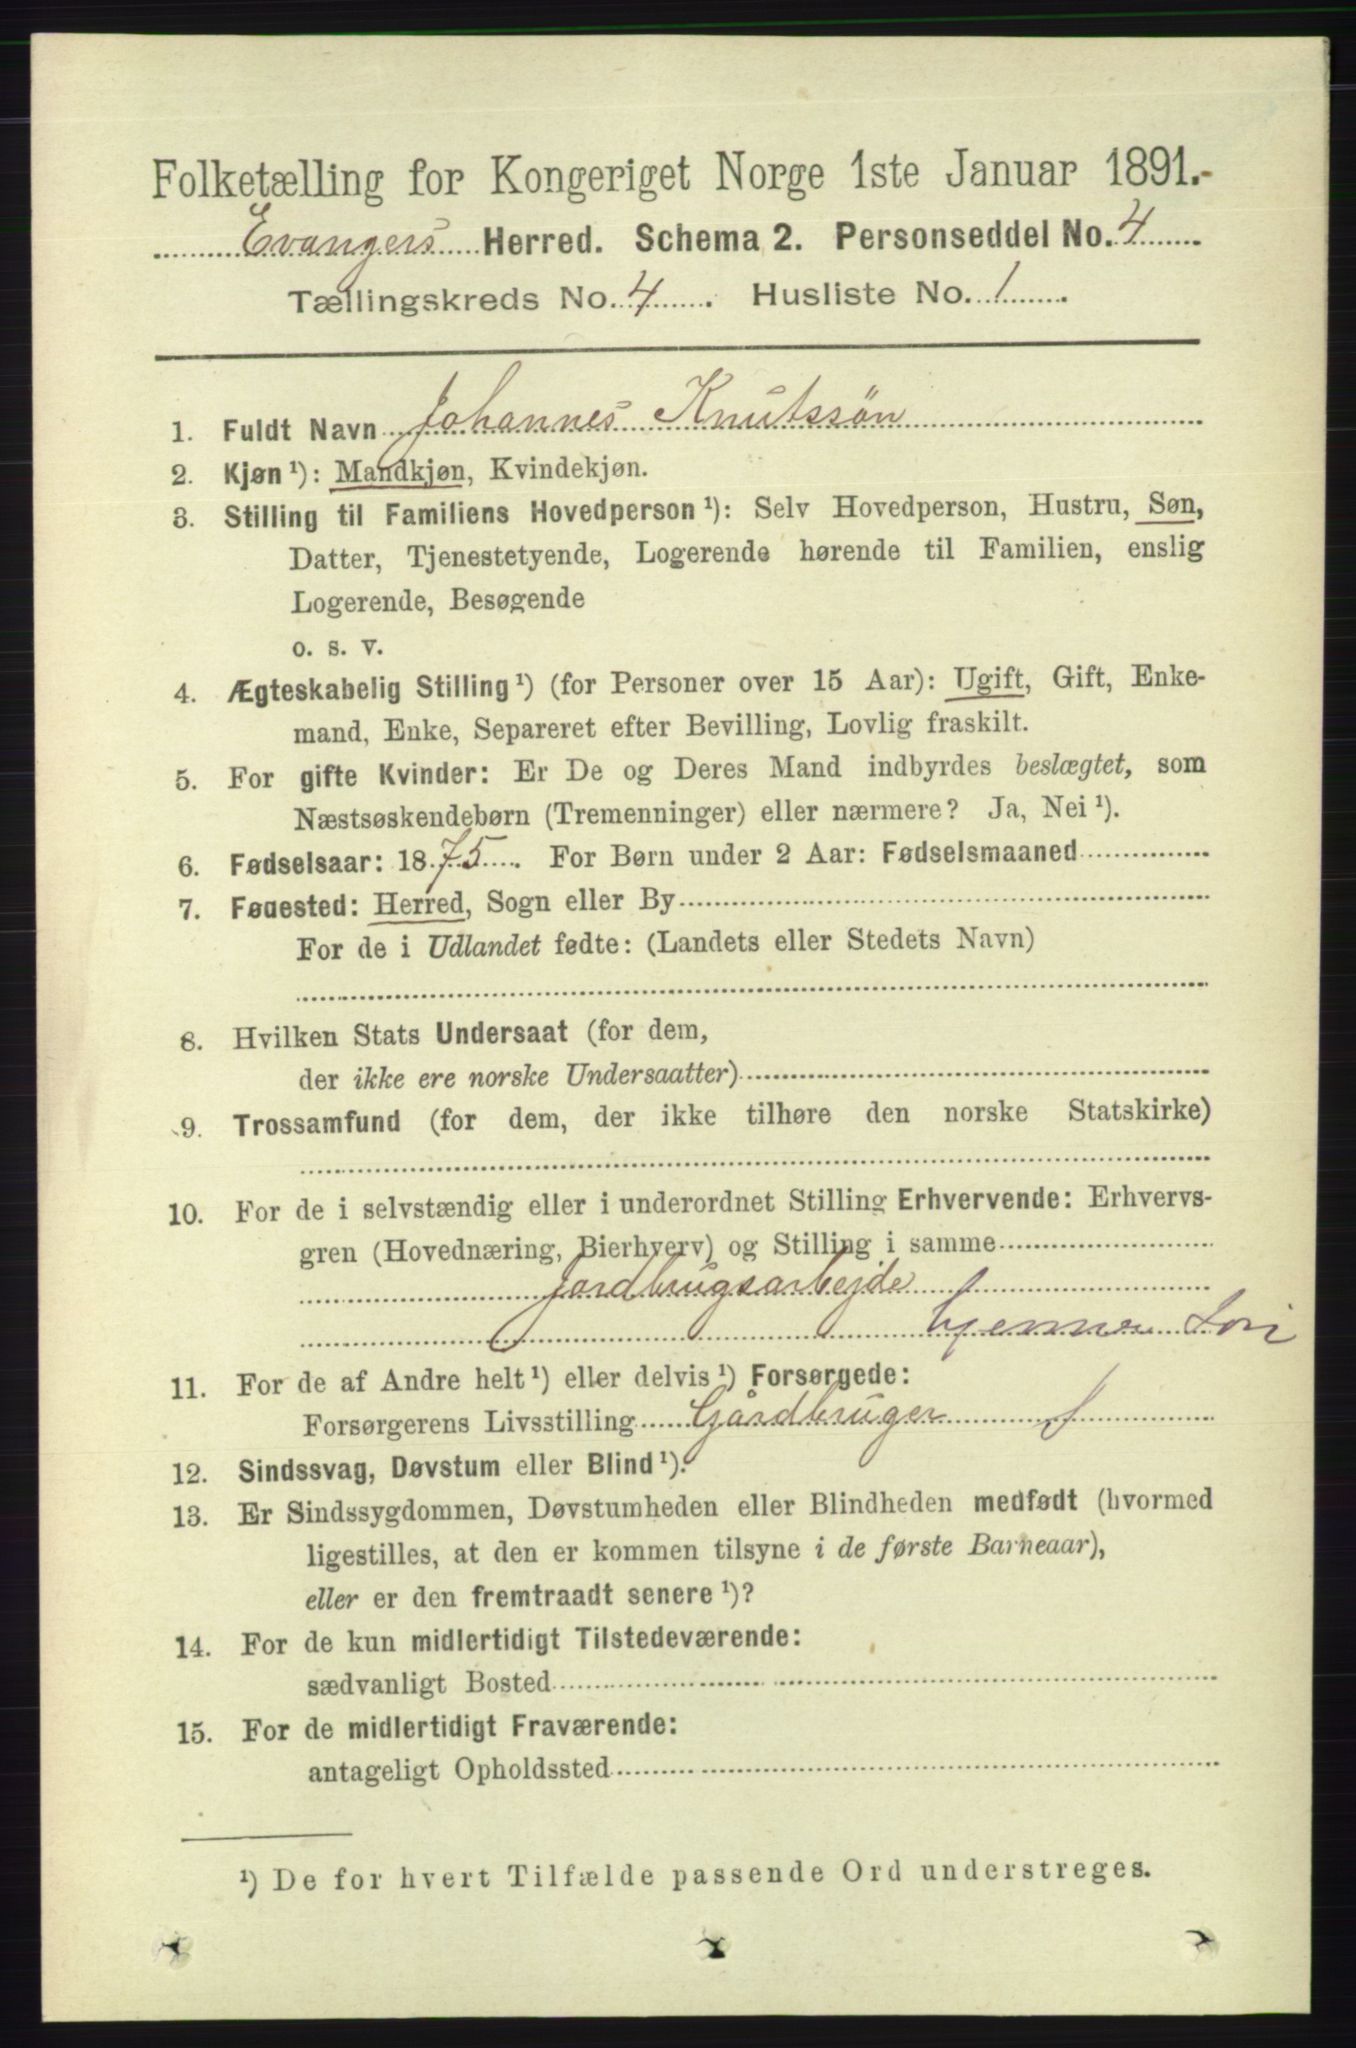 Folketælling for Kongeriget Norge 1ste Januar 1891.
Evangers Herred. Schema 2. Personseddel No. 4
Tællingskreds No. 4. Husliste No. 1.
1. Fuldt Navn Johannes Knutssøn
2. Kjøn ¹): Mandkjøn, Kvindekjøn.
3. Stilling til Familiens Hovedperson ¹): Selv Hovedperson, Hustru, Søn,
Datter, Tjenestetyende, Logerende hørende til Familien, enslig
Logerende, Besøgende
o. s. v.
4. Ægteskabelig Stilling ¹) (for Personer over 15 Aar): Ugift, Gift, Enke-
mand, Enke, Separeret efter Bevilling, Lovlig fraskilt.
5. For gifte Kvinder: Er De og Deres Mand indbyrdes beslægtet, som
Næstsøskendebørn (Tremenninger) eller nærmere? Ja, Nei ¹).
6. Fødselsaar: 1875. For Børn under 2 Aar: Fødselsmaaned
7. Fødested: Herred, Sogn eller By
For de i Udlandet fødte: (Landets eller Stedets Navn)
8. Hvilken Stats Undersaat (for dem,
der ikke ere norske Undersaatter)
9. Trossamfund (for dem, der ikke tilhøre den norske Statskirke)
10. For de i selvstændig eller i underordnet Stilling Erhvervende: Erhvervs-
gren (Hovednæring, Bierhverv) og Stilling i samme
Jordbrugsarbejde
11. For de af Andre helt ¹) eller delvis ¹) Forsørgede:
Forsørgerens Livsstilling Gårdbruger
12. Sindssvag, Døvstum eller Blind ¹).
13. Er Sindssygdommen, Døvstumheden eller Blindheden medfødt (hvormed
ligestilles, at den er kommen tilsyne i de første Barneaar),
eller er den fremtraadt senere ¹)?
14. For de kun midlertidigt Tilstedeværende:
sædvanligt Bosted
15. For de midlertidigt Fraværende:
antageligt Opholdssted
¹) De for hvert Tilfælde passende Ord understreges.